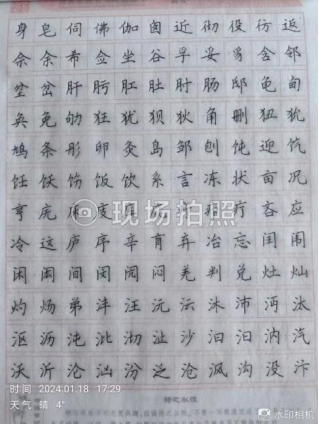 身皂伺佛伽囱近彻役彷返
佘余希佥坐谷孚妥豸含邻
坌岔肝肟肛肚肘肠邸龟甸
奂免劬狂犹狈狄角删狃狁
鸠条彤卵灸岛邹刨饨迎饩
饪饫饬饭饮系言冻状亩况
亨庑床庋库疗吝应
冷这庐序辛肓弃冶忘闰闱
闲闳间闵闶闷羌判兑灶灿
灼炀弟沣汪沅沄沐沛沔汰
沤沥沌沘沏沚沙汩汨汭汽
沃沂沦汹汾泛沧沨沟没汴
现场拍照
时间 2024.01.18 17:29
天气 晴 4°
水印相机